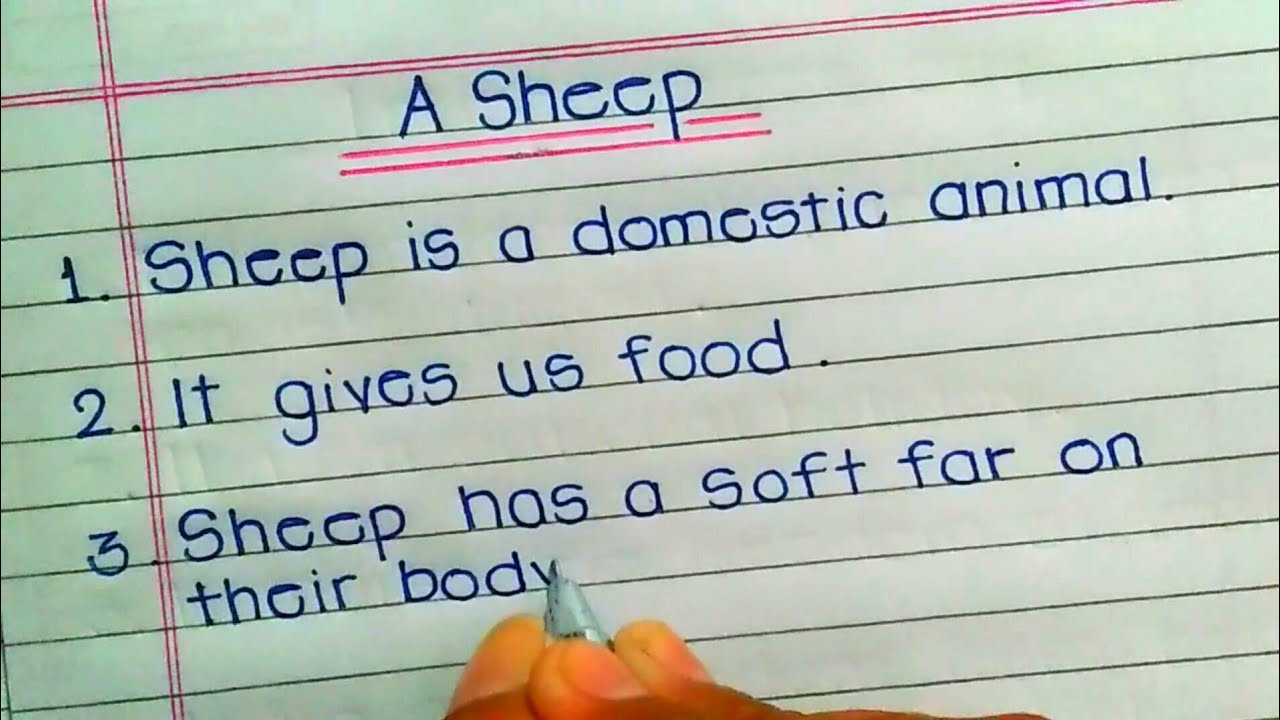 A Sheep
1. Sheep is a domestic animal.
2. It gives us food.
3. Sheep has a soft far on
their body